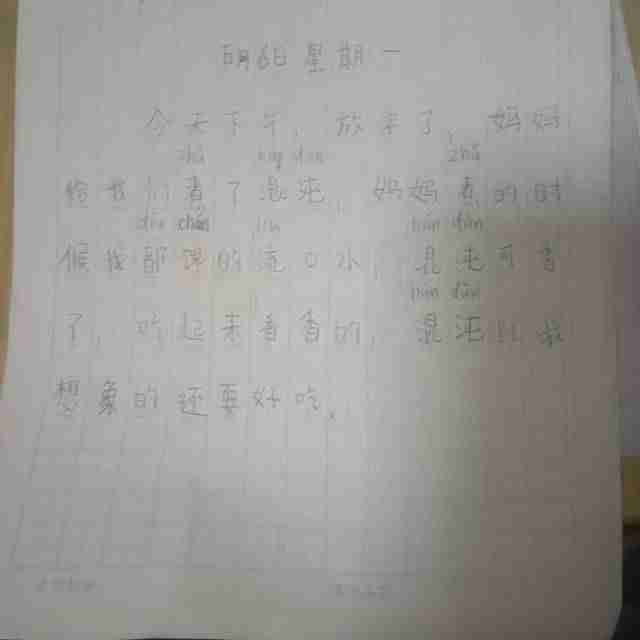 月6日星期一
今天下午，放学了，妈妈
zhǔ hún dùn zhǔ
给我们煮了混沌，妈妈煮的时
dōu chán liú hún dùn
候我都馋的流口水，混沌可香
hún dùn
了，吃起来香香的，混沌比我
想象的还要好吃。